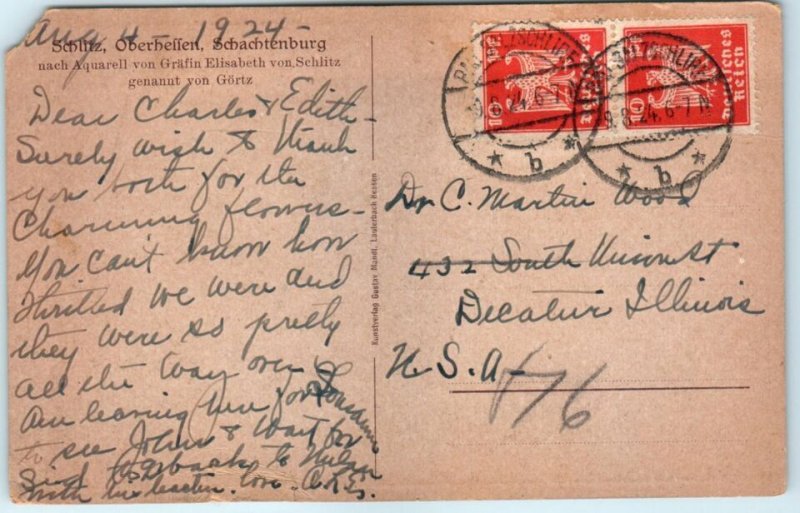 Aug 4 - 1924 -
Schlitz, Oberhessen, Schachtenburg
nach Aquarell von Gräfin Elisabeth von Schlitz
genannt von Görtz
Dear Charles & Edith -
Surely wish to thank
you both for the
Charming flowers -
You can't know how
thrilled we were and
they were so pretty
all the way over
Am leaving here for Lausanne
to see John & wait for
back to
with love
Kunstverlag Gustav Mandt, Lauterbach Hessen
10 Pf. Deutsches Reich
10 Deutsches Reich
8.24. 6-7 N
b
8.24. 6-7 N
b
Dr C. Martin Wood
432 South Union St
Decatur Illinois
U.S.A -